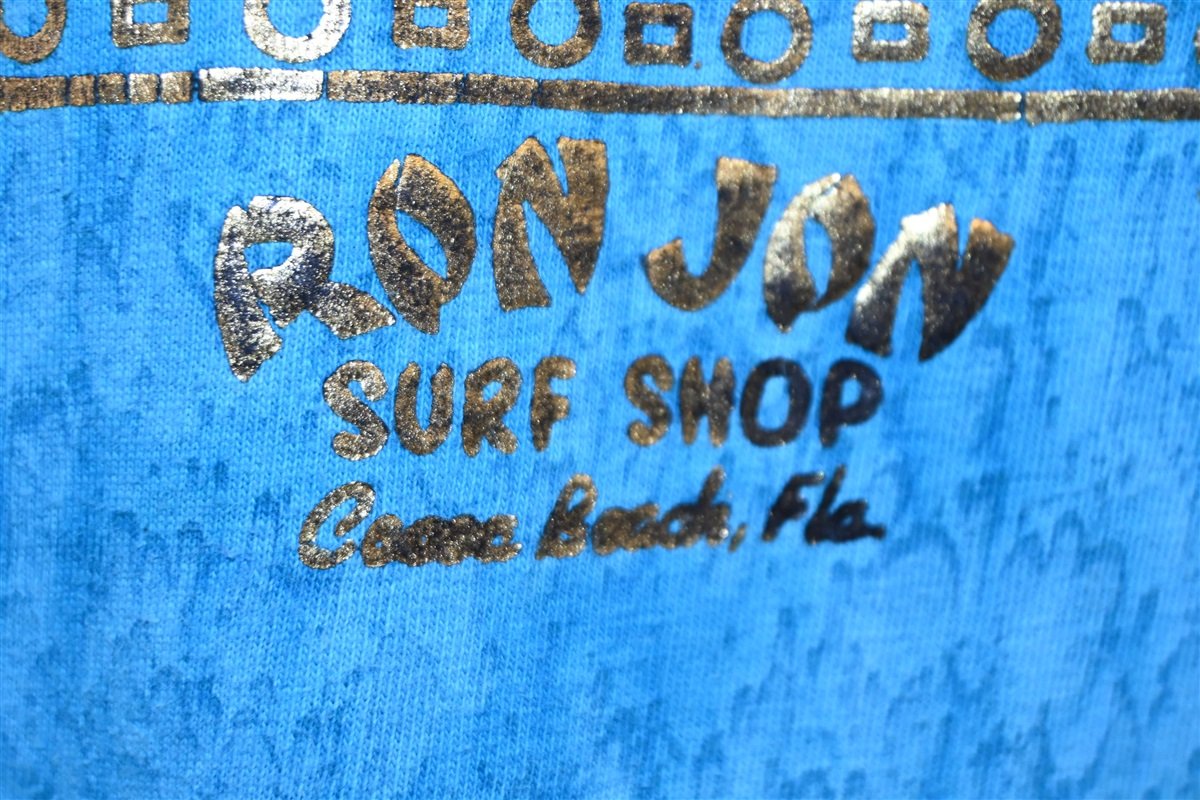 RON JON
SURF SHOP
Cocoa Beach, Fla.